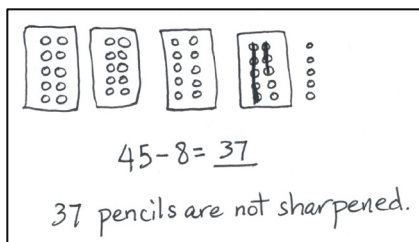 45-8=37
37 pencils are not sharpened.